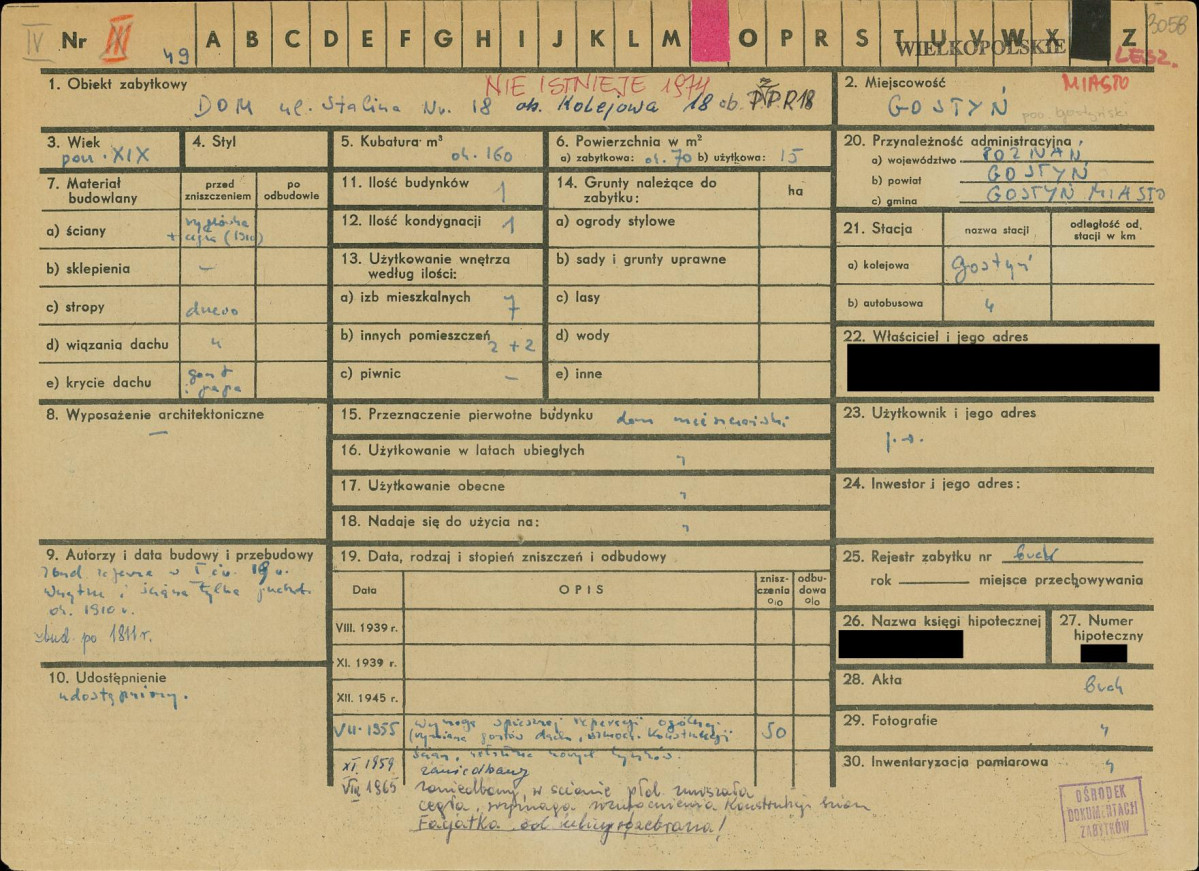 IV Nr III 49 A B C D E F G H I J K L M O P R S T U V W X Z 3058
WIELKOPOLSKIE
LESZ.
NIE ISTNIEJE 1974
MIASTO
1. Obiekt zabytkowy
DOM ul. Stalina Nr. 18 ob. Kolejowa 18 ob. P.P.R 18
2. Miejscowość
GOSTYŃ pow. gostyński
3. Wiek
pow. XIX
4. Styl
5. Kubatura m³
ok. 160
6. Powierzchnia w m²
a) zabytkowa: ok. 70 b) użytkowa: 15
20. Przynależność administracyjna
a) województwo POZNAŃ
b) powiat GOSTYŃ
c) gmina GOSTYŃ MIASTO
7. Materiał budowlany
przed zniszczeniem
po odbudowie
a) ściany
+ cegła (1910)
b) sklepienia –
c) stropy drewno
d) wiązania dachu "
e) krycie dachu gont i papa
11. Ilość budynków 1
12. Ilość kondygnacji 1
13. Użytkowanie wnętrza według ilości:
a) izb mieszkalnych 7
b) innych pomieszczeń 2 + 2
c) piwnic –
14. Grunty należące do zabytku:
ha
a) ogrody stylowe
b) sady i grunty uprawne
c) lasy
d) wody
e) inne
21. Stacja
nazwa stacji
odległość od stacji w km
a) kolejowa Gostyń
b) autobusowa "
22. Właściciel i jego adres
8. Wyposażenie architektoniczne
–
15. Przeznaczenie pierwotne budynku dom mieszczański
16. Użytkowanie w latach ubiegłych "
17. Użytkowanie obecne "
18. Nadaje się do użycia na: "
23. Użytkownik i jego adres
j.w.
24. Inwestor i jego adres:
9. Autorzy i data budowy i przebudowy
w I ćw. 19 w.
i ściana tylna
ok. 1910 r.
zbud. po 1811 r.
10. Udostępnienie
udostępniony.
19. Data, rodzaj i stopień zniszczeń i odbudowy
Data
OPIS
zniszczenia o|o
odbudowa o|o
VIII. 1939 r.
XI. 1939 r.
XII. 1945 r.
VII. 1955 wymaga spiesznej reperacji ogólnej 50
(wymiana gontów dachu, wzmocn. konstrukcji
ścian, nowych tynków.
XI. 1959 zaniedbany
VIII 1965 zaniedbany, w ścianie płd. zmurszała
cegła, wymaga wzmocnienia konstrukcji ścian
Facjatka od rozebrana!
25. Rejestr zabytku nr brak
rok miejsce przechowywania
26. Nazwa księgi hipotecznej
27. Numer hipoteczny
28. Akta brak
29. Fotografie "
30. Inwentaryzacja pomiarowa "
OŚRODEK
DOKUMENTACJI
ZABYTKÓW